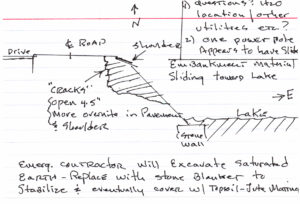 1) Questions? H2O
location / other
utilities etc.?
2) one power pole
Appears to have Slid
N
Shoulder
℄ ROAD
Drive
Embankment Material
Sliding toward Lake
E
"CRACKS"
open 4-5"
More overnite in Pavement
& Shoulders
Lake
Stone
Wall
Emerg. Contractor will Excavate Saturated
EARTH - Replace with stone Blanket to
Stabilize & eventually cover w/ Topsoil - Jute